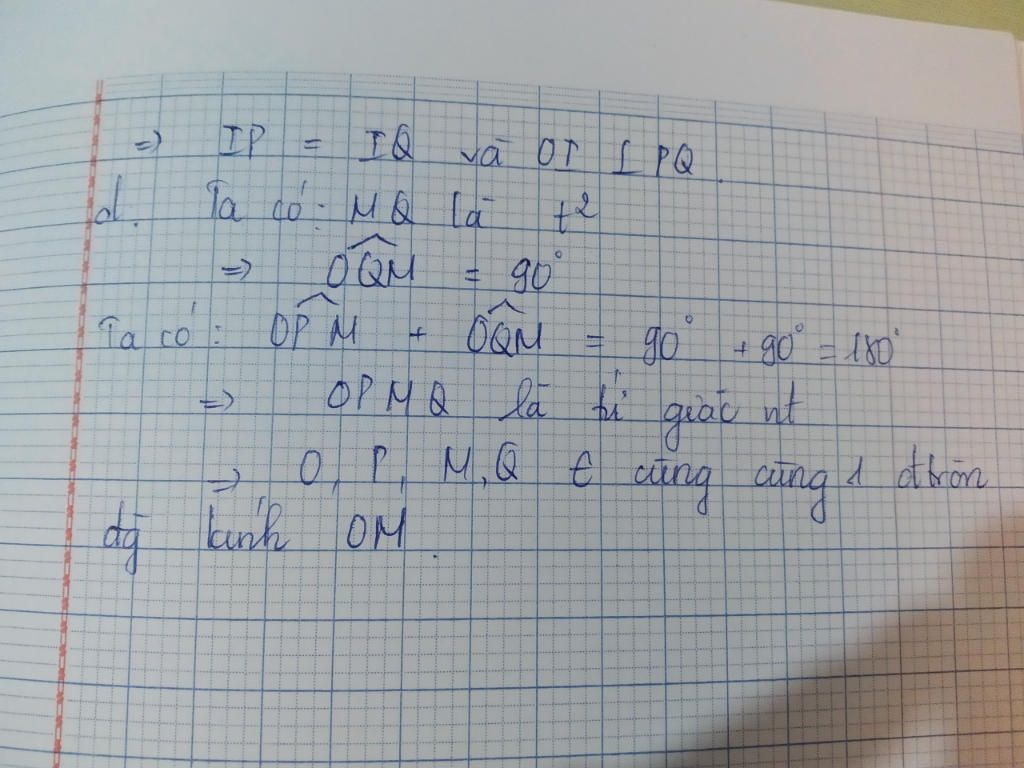 => IP = IQ và OI ⊥ PQ.
d. Ta có: MQ là t²
=> \widehat{OQM} = 90°
Ta có: \widehat{OPM} + \widehat{OQM} = 90° + 90° = 180°
=> OPMQ là tứ giác nt
=> O, P, M, Q ∈ cùng cùng 1 đtròn
đg kính OM.